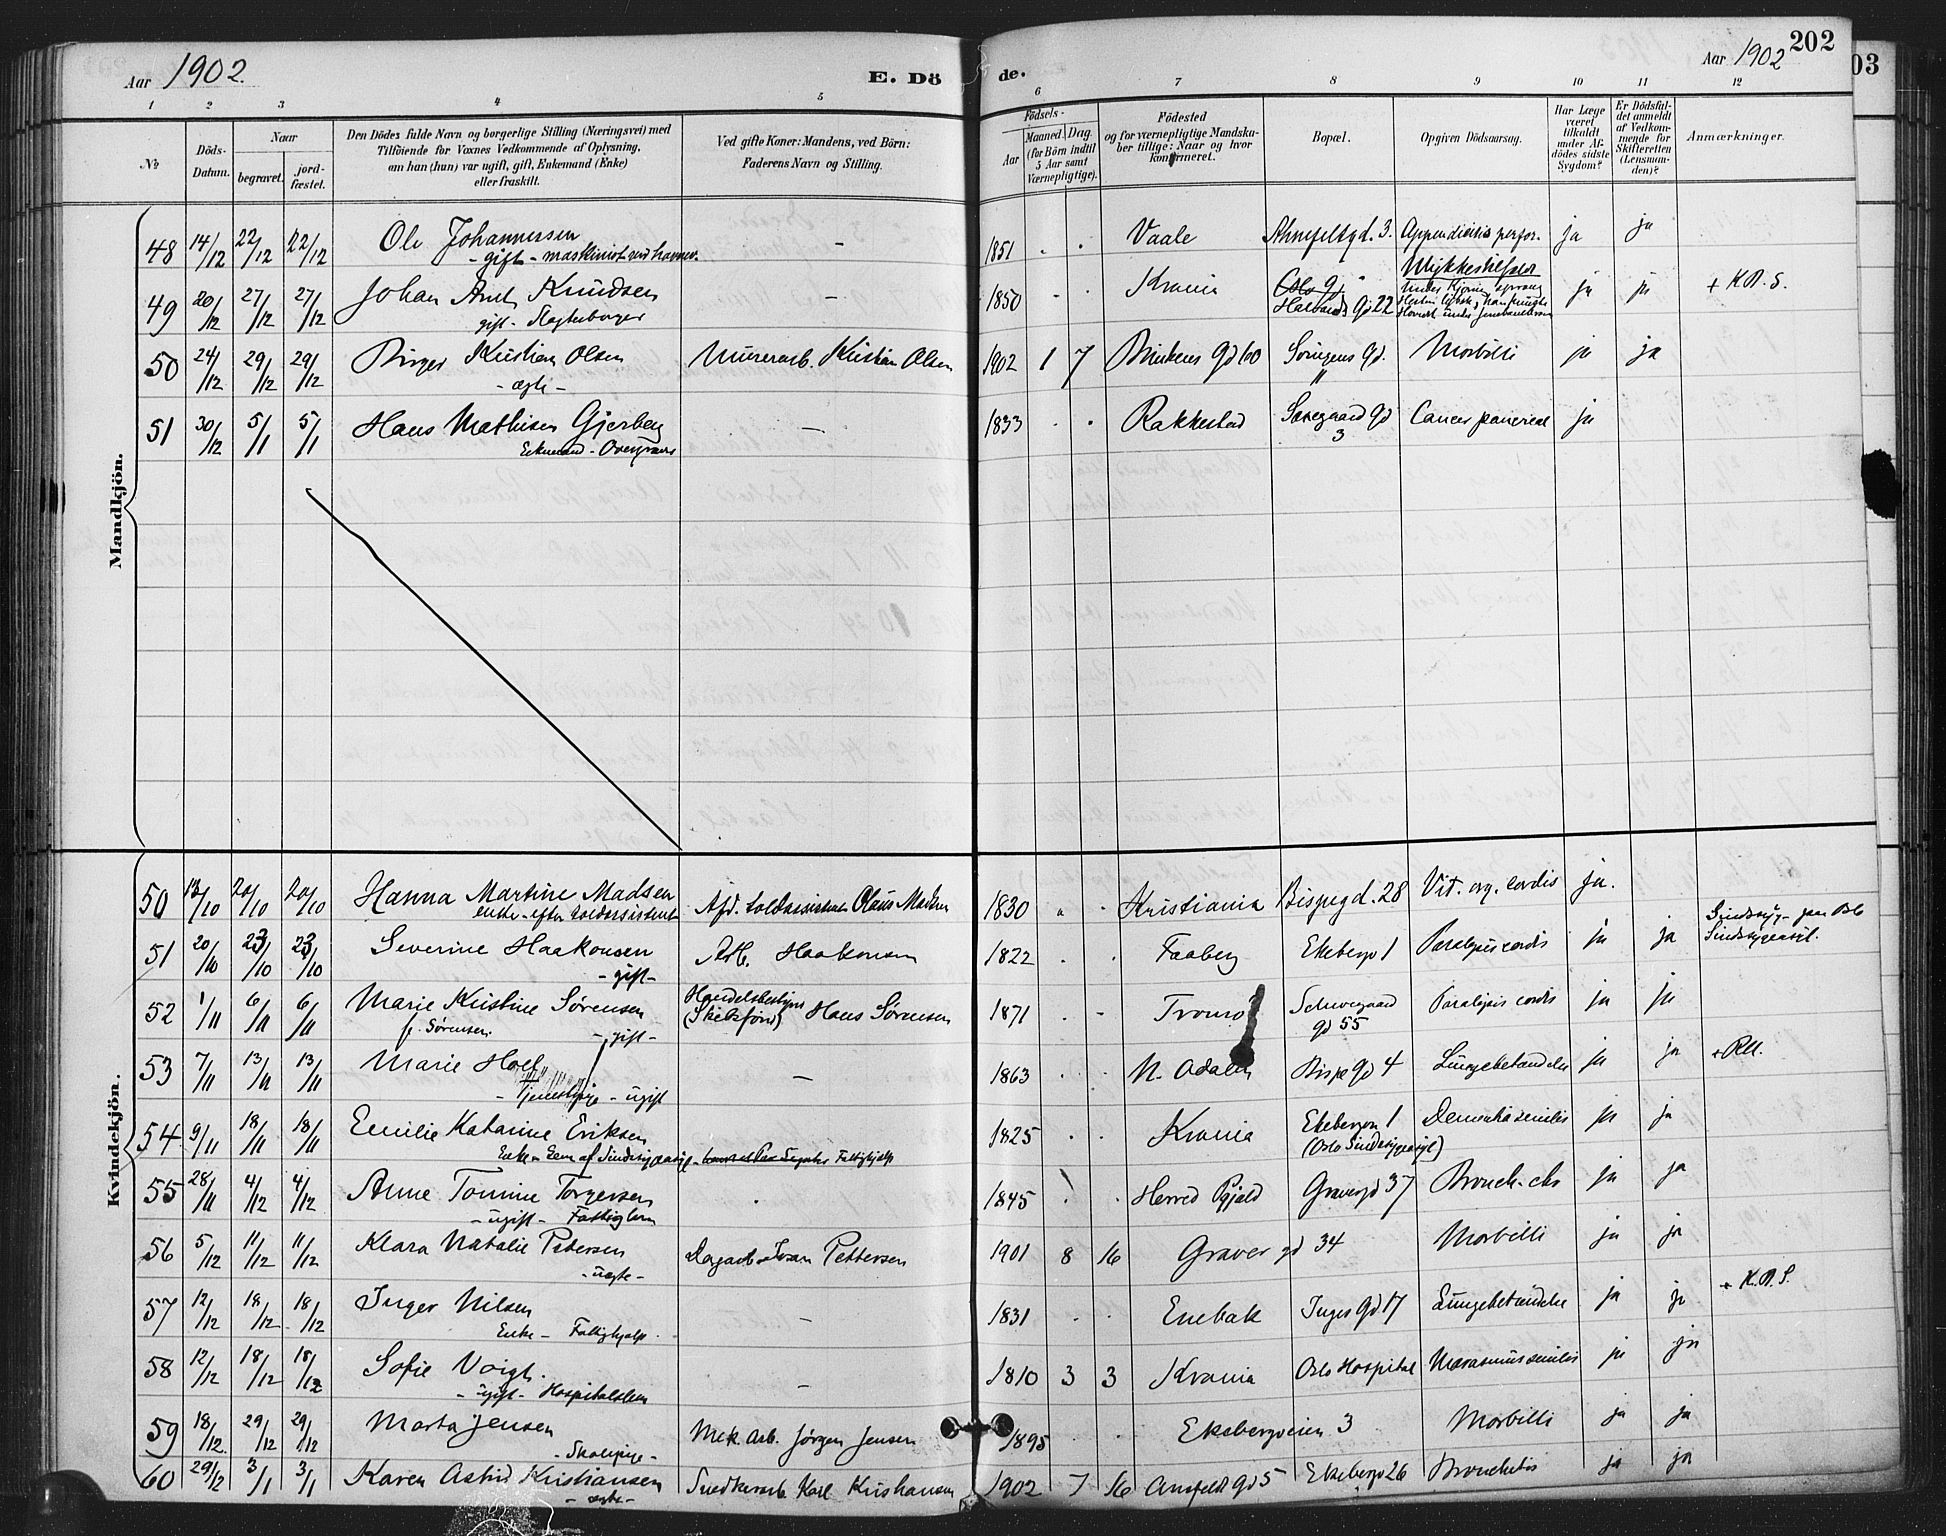 Aar 1902.
E. Dö
de.
Aar 1902
202
03
1 2 3 4 5 6 7 8 9 10 11 12
№
Döds-Datum.
Naar
begravet.
jord-fæstet.
Den Dödes fulde Navn og borgerlige Stilling (Næringsvei) med
Tilföiende for Voxnes Vedkommende af Oplysning,
om han (hun) var ugift, gift, Enkemand (Enke)
eller fraskilt.
Ved gifte Koner: Mandens, ved Börn:
Faderens Navn og Stilling.
Födsels-
Aar
Maaned. Dag.
(for Börn indtil
5 Aar samt
Værnepligtige).
Födested
og for værnepligtige Mandska-
ber tillige: Naar og hvor
konfirmeret.
Bopæl.
Opgiven Dödsaarsag.
Har Læge
været
tilkaldt
under Af-
dödes sidste
Sygdom?
Er Dödsfal-
det anmeldt
af Vedkom-
mende for
Skifteretten
(Lensman-
den)?
Anmærkninger.
Mandkjön.
48 14/12 22/12 22/12 Ole Johannesen – 1851 . . Vaale Ahnfeltgd. 3. Appendicitis perfor. ja ja
- gift - maskinist ved havnev.
49 20/12 27/12 27/12 Johan Ant. Knudsen – 1850 . . Krania Oslo g Ulykkestilfælde ja ja + K.R.S.
gift - Slagterborger Harbards Gd 22 under Kjøring sprang
50 24/12 29/12 29/12 Birger Kristian Olsen Murerarb. Kristian Olsen 1902 1 7 Munkens Gd 60 Sveigens Gd. Morbilli ja ja
- ægte - "
51 30/12 5/1 5/1 Hans Mathisen Gjerberg – 1833 . . Rakkestad Saxegaard Gd Cancer pancreat ja
Enkemand - 3
Kvindekjön.
50 13/10 20/10 20/10 Hanna Martine Madsen Afd. toldassistent Olaus Madsen 1830 " . Kristiania Bispegd. 28 Vit. org. cordis ja.
enke - efter toldassistent
51 20/10 23/10 23/10 Severine Haakonsen Arb. Haakonsen 1822 . . Faaberg Ekebergv 1 Paralysis cordis ja ja Sindssyg - paa Oslo Sindssygeasyl.
- gift -
52 1/11 6/11 6/11 Marie Kristine Sørensen Handelsbestyrer Hans Sørensen 1871 . - Tromsø Schweigaard Paralysis cordis ja ja
f. Sørensen. - gift - gd 55
53 7/11 13/11 13/11 Marie Holt – 1863 . . N. Adalen Bispe Gd 4 Lungebetændelse ja ja
- Tjenestepige - ugift
54 9/11 18/11 18/11 Emilie Katarine Eriksen 1825 . . Krania Ekebergvn 1 Dementia senilis ja ja
Enke - Lem af Sindssygeasyl - Fattighjælp (Oslo Sindssygeasyl)
55 28/11 4/12 4/12 Anne Tomine Torgersen . 1845 . Herred Gravergd 37 Bronch. chr ja ja
- ugift - Fattiglem
56 5/12 11/12 11/12 Klara Natalie Petersen Dagarb. Ivar Pettersen 1901 8 16 Graver gd 34 Morbilli ja ja
- uægte -
57 12/12 18/12 18/12 Inger Nilsen – 1831 . . Enebak Inges Gd 17 Lungebetændelse ja ja + K.R.S.
Enke - Fattighjælp.
58 12/12 18/12 18/12 Sofie Voigt. – 1810 3 3 Krania Oslo Hospital Marasmus senilis ja ja
- ugift - Hospitalslem
59 18/12 29/12 29/12 Marta Jensen Mek. Arb. Jørgen Jensen 1895 . . Ekebergveien 3 Morbilli ja ja
- Skolepige -
60 29/12 3/1 3/1 Karen Astrid Kristiansen Snedkerarb. Karl Kristiansen 1902 7 16 Ansfeldt Gd 5 Ekebergv 26 Bronchitis ja ja
- ægte -